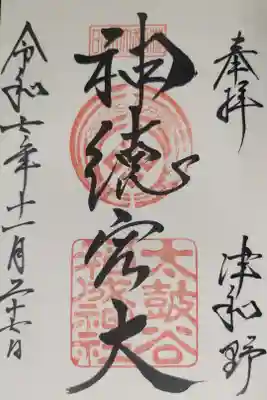 奉拝
津和野
神徳宏大
太鼓谷
稲成神社
令和七年十一月二十日